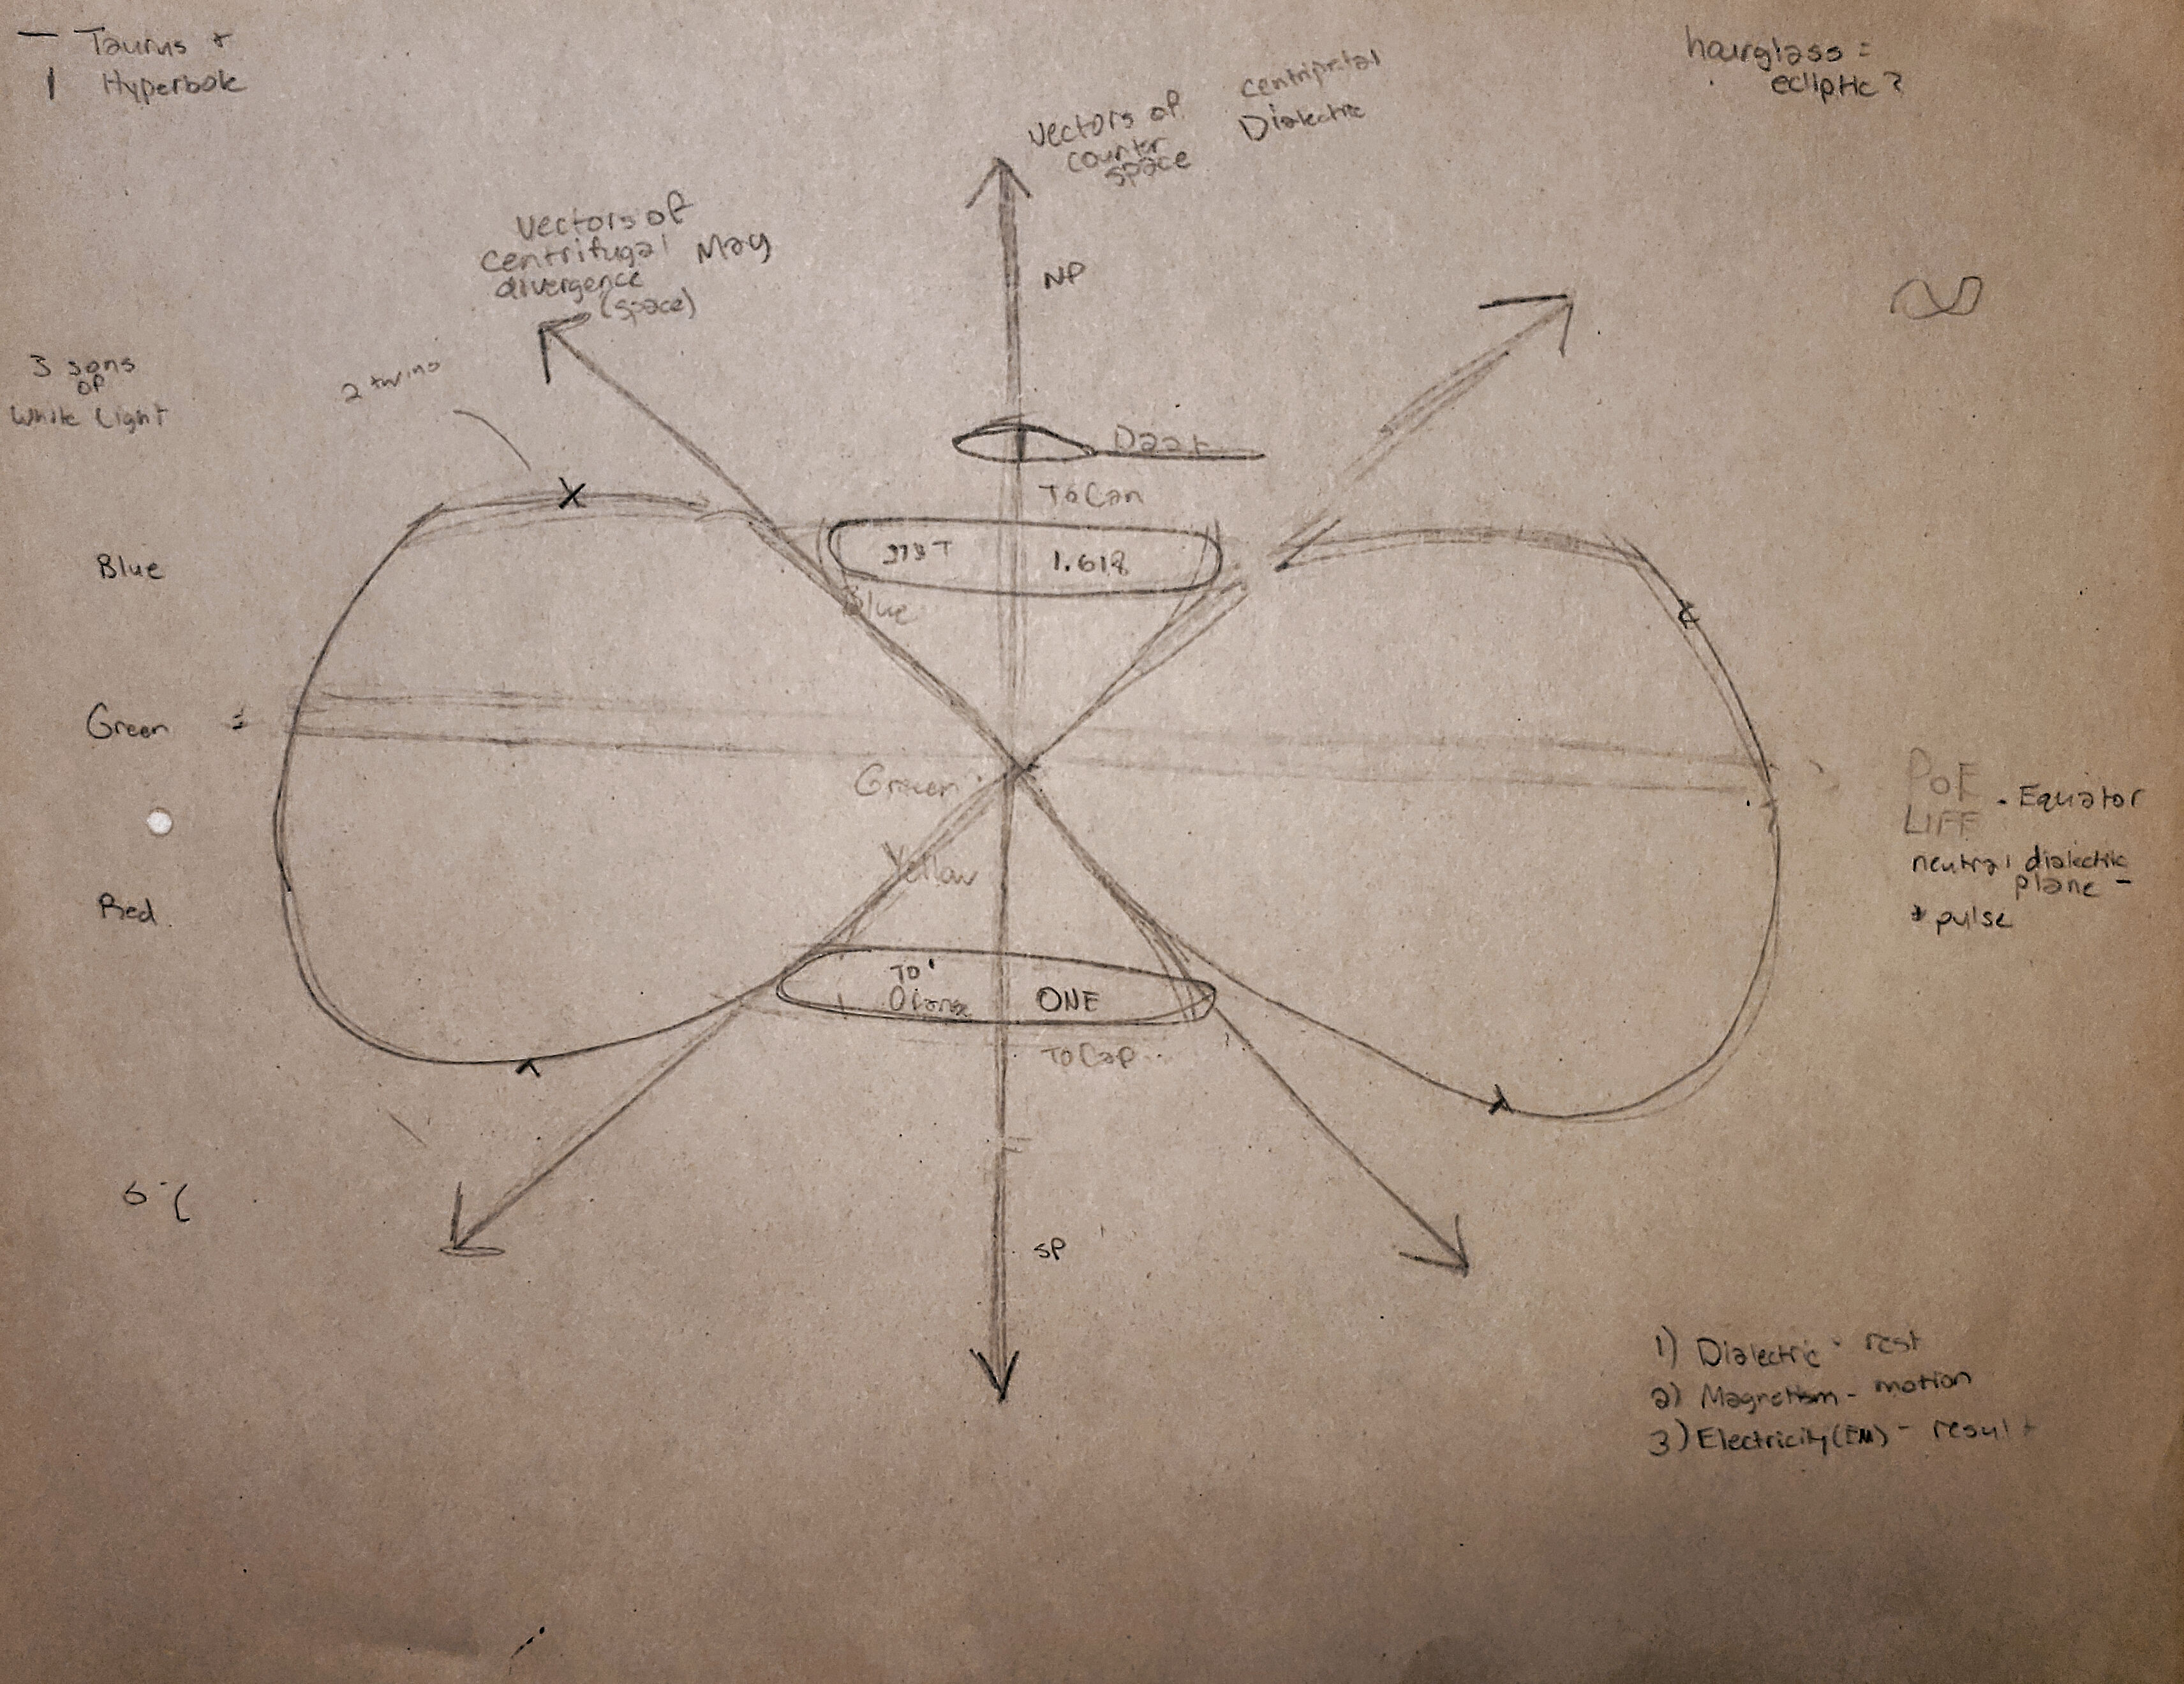 — Taurus +
| Hyperbole
hourglass =
ecliptic?
Vectors of
counter
space
centripetal
Dialectric
Vectors of
centrifugal Mag
divergence
(space)
NP
3 sons
of
White Light
2 twins
Daat
To Can
1.618
Blue
Blue
Green =
Green
Yellow
Red
PoE
LIFE
- Equator
neutral dialectric
plane -
* pulse
TO'
ONE
To Cap
SP
1) Dialectric - rest
2) Magnetism - motion
3) Electricity (EM) - result